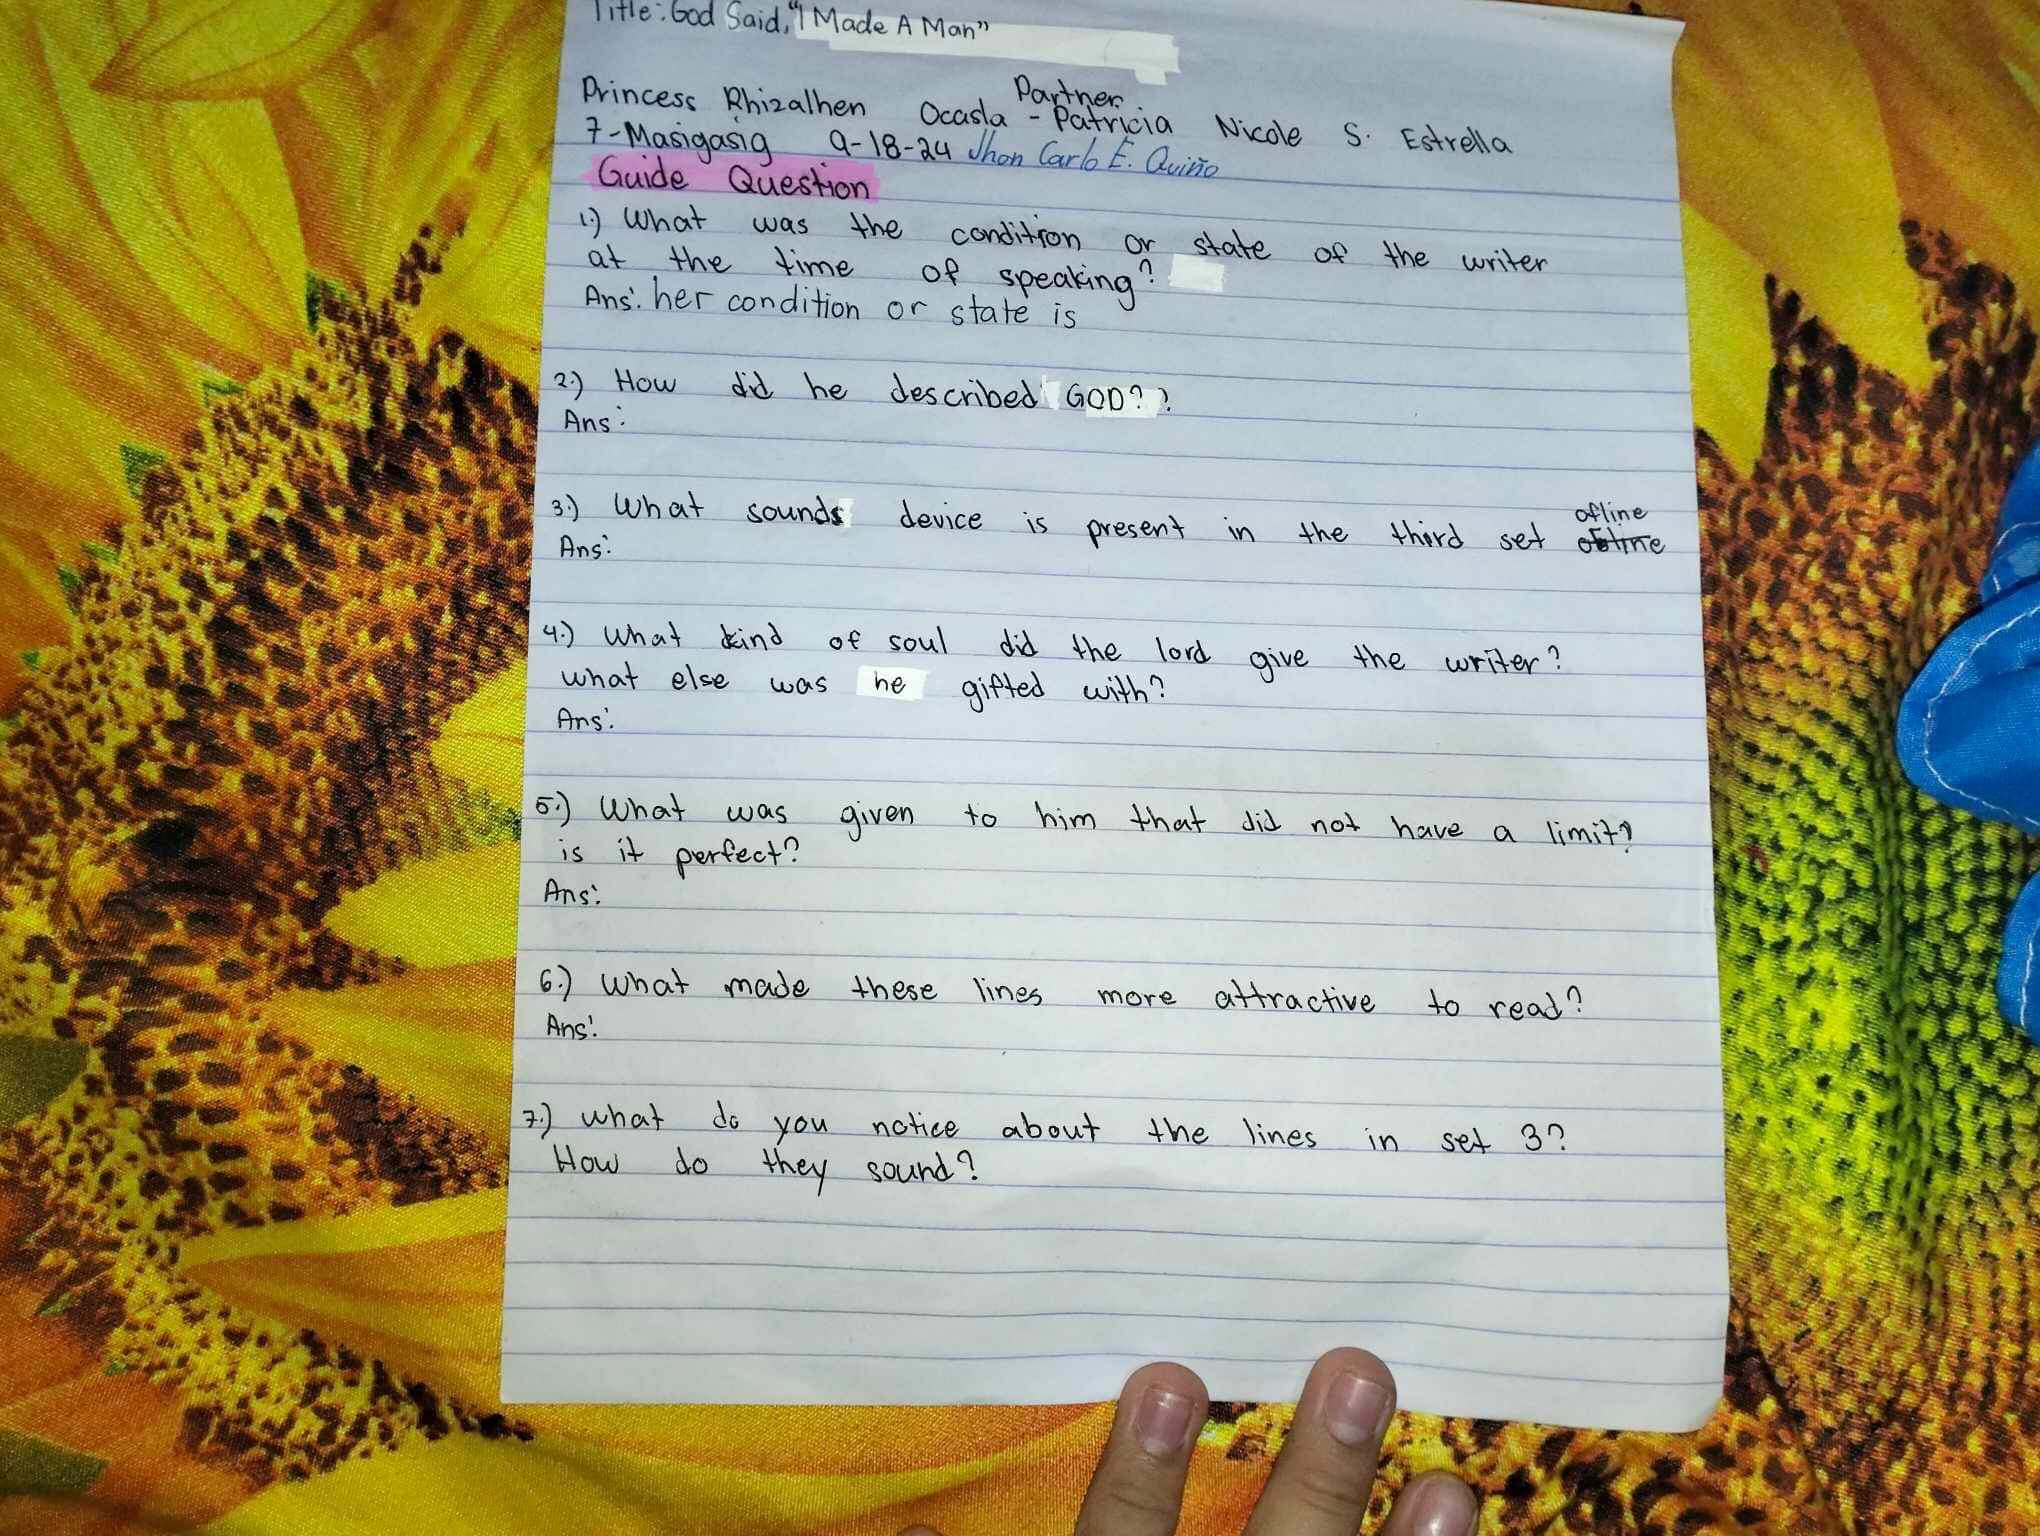 Title: God Said, "I Made A Man"
Partner
Princess Rhizalhen Ocasla - Patricia Nicole S. Estrella
7-Masigasig 9-18-24 Jhon Carlo E. Quiño
Guide Question
1.) What was the condition or state of the writer
at the time of speaking?
Ans: her condition or state is
2.) How did he described GOD??
Ans:
3.) What sounds device is present in the third set ofline
Ans:
4.) What kind of soul did the lord give the writer?
what else was he gifted with?
Ans:
5.) What was given to him that did not have a limit?
is it perfect?
Ans:
6.) What made these lines more attractive to read?
Ans:
7.) what do you notice about the lines in set 3?
How do they sound?